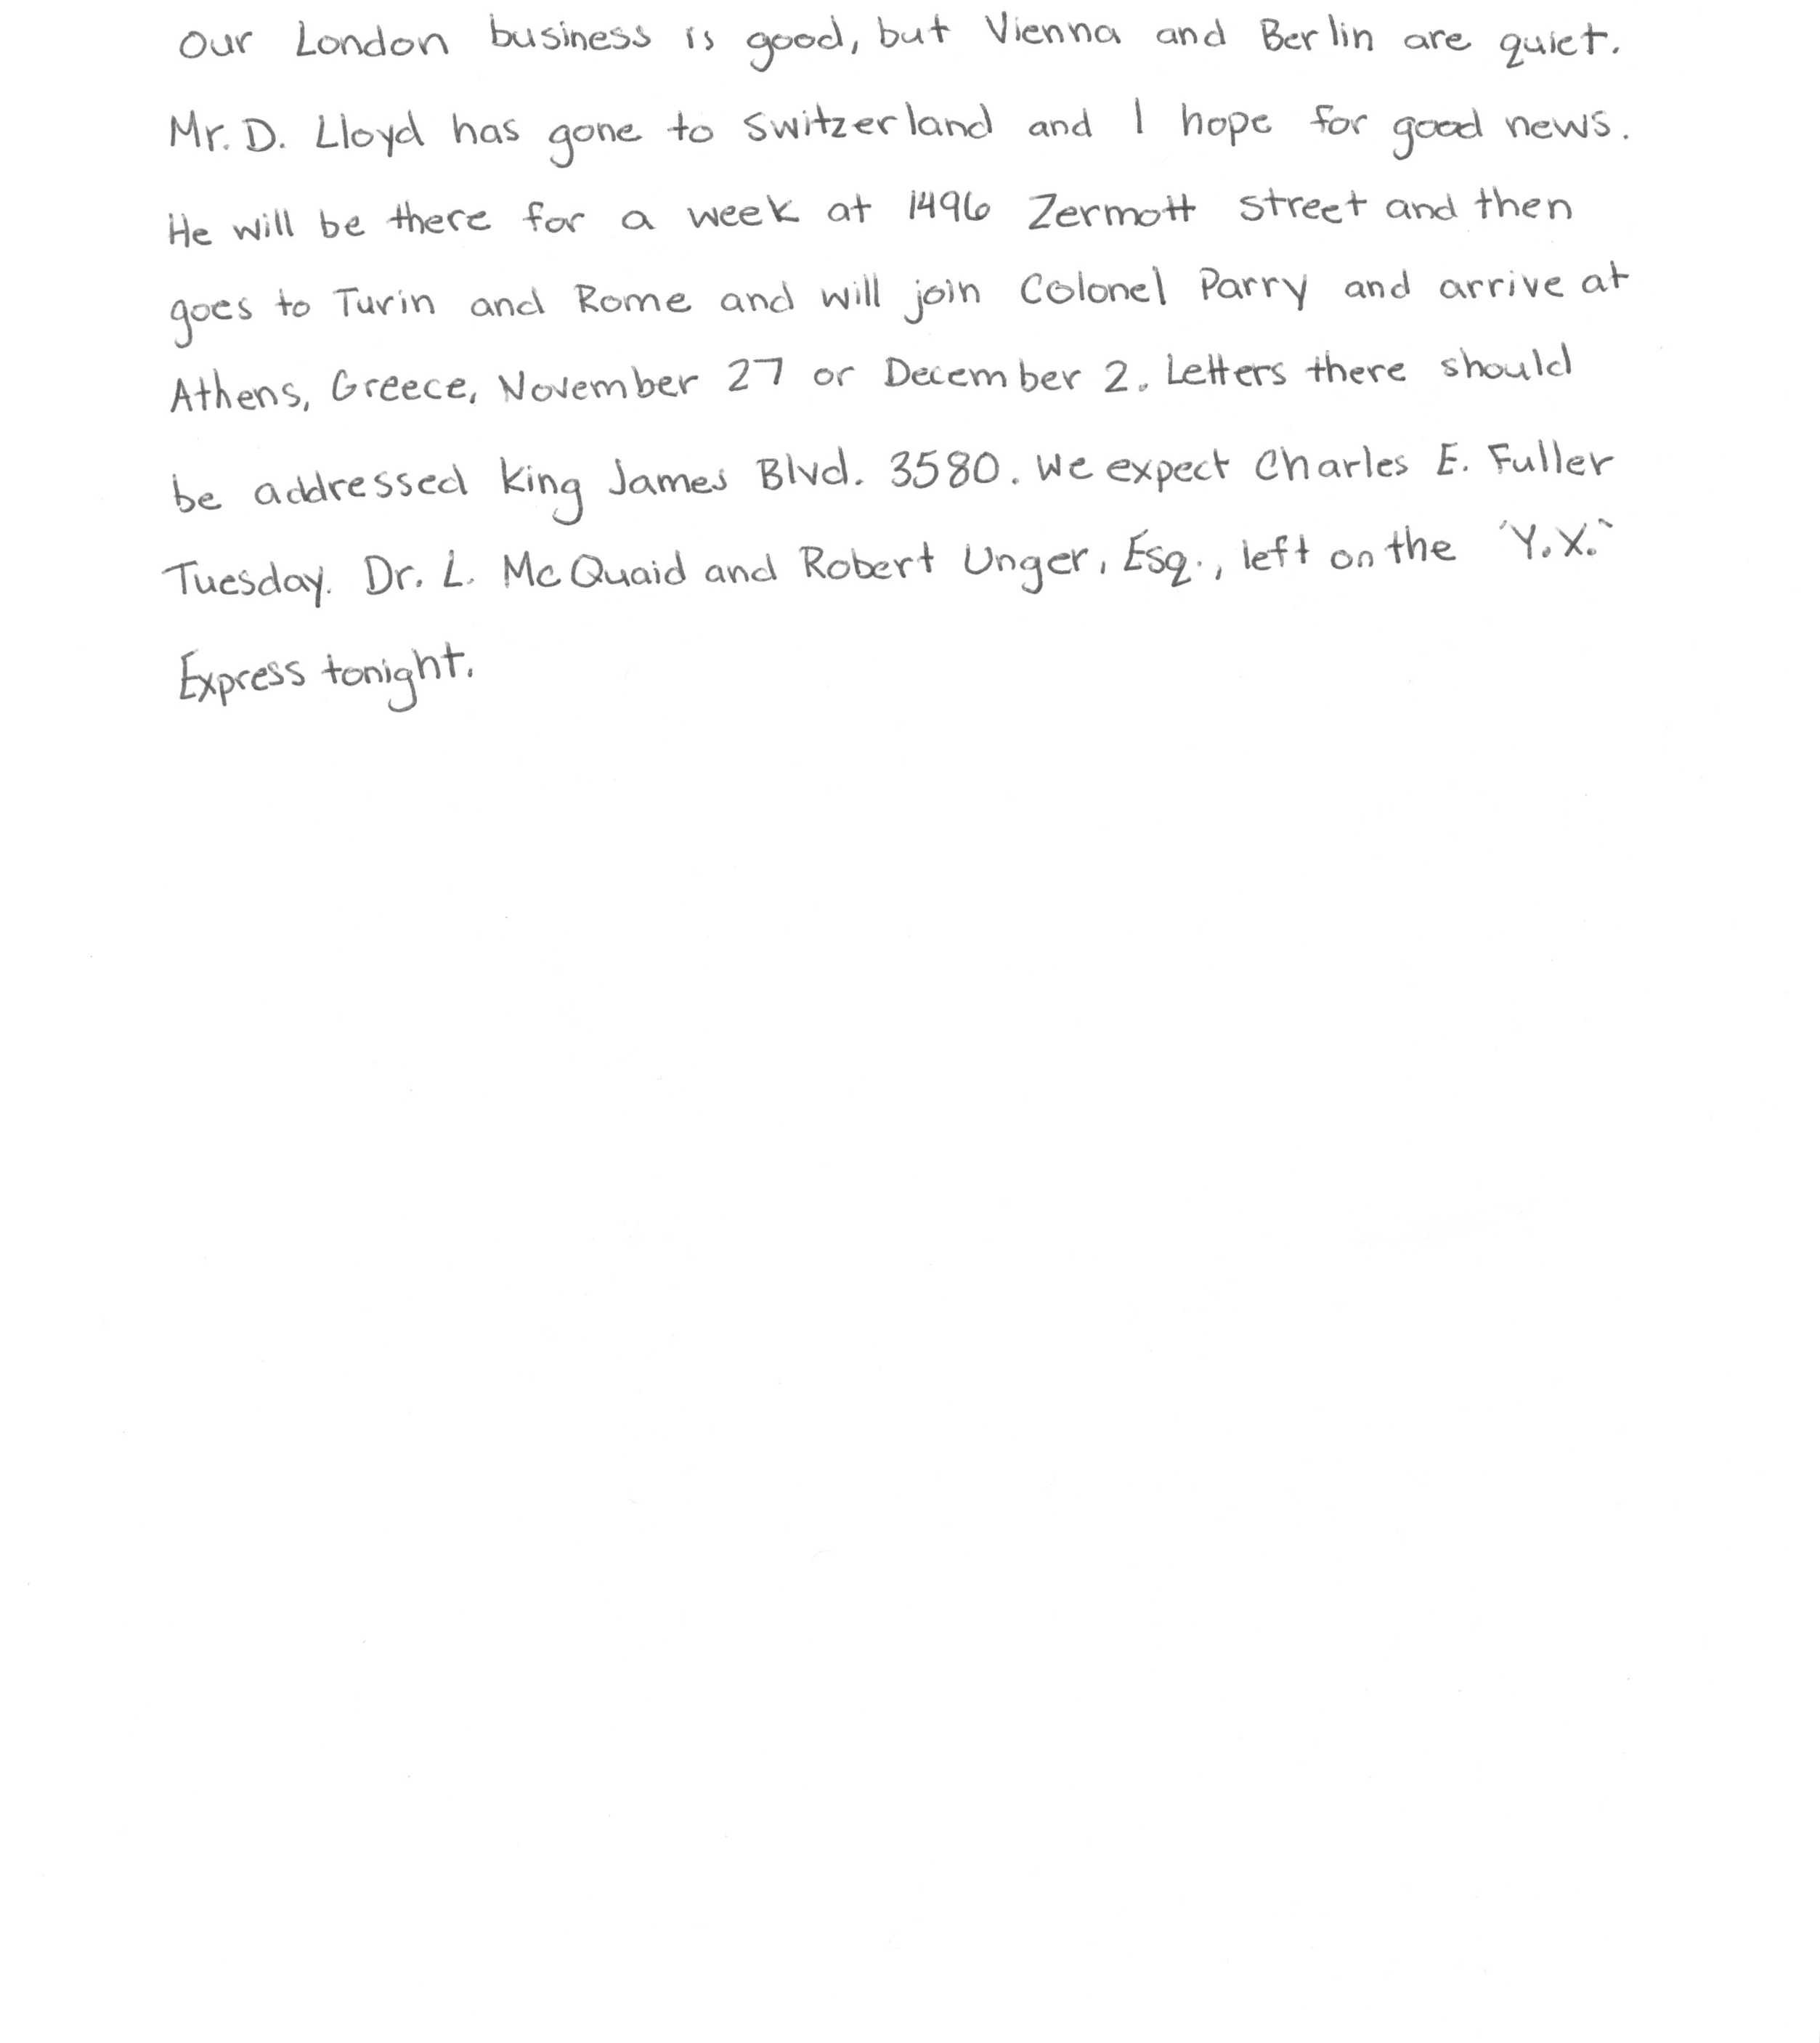 Our London business is good, but Vienna and Berlin are quiet.
Mr. D. Lloyd has gone to Switzerland and I hope for good news.
He will be there for a week at 1496 Zermott street and then
goes to Turin and Rome and will join Colonel Parry and arrive at
Athens, Greece, November 27 or December 2. Letters there should
be addressed King James Blvd. 3580. We expect Charles E. Fuller
Tuesday. Dr. L. McQuaid and Robert Unger, Esq., left on the "Y.X."
Express tonight.